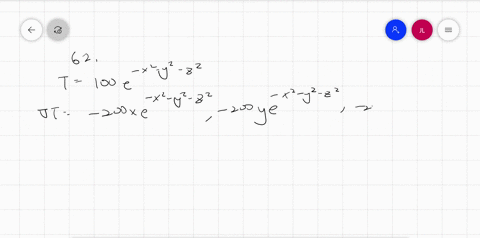 62.
T = 100 e^{-x²-y²-z²}
∇T = -200x e^{-x²-y²-z²}, -200y e^{-x²-y²-z²}, -2